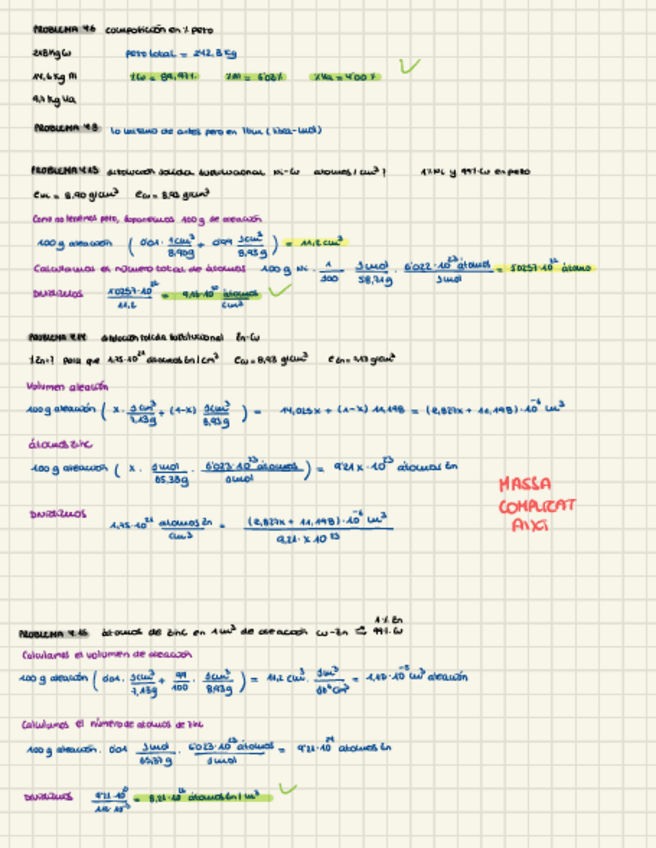 PROBLEMA 4.6 composición en % peso
218 Kg Cu peso total = 242,3 Kg
14,6 Kg Ni %Cu = 89,97% %Ni = 6'02% %Va = 4'00 %
9,7 Kg Va
PROBLEMA 4.8 lo mismo de antes pero en lbm (libra-mol)
disolución sólida sustitucional Ni-Cu átomos/cm³? 1% Ni y 99% Cu en peso
ρNi = 8,90 g/cm³ ρCu = 8,93 g/cm³
Como no tenemos peso, suponemos 100 g de aleación
100 g aleación ( 0'01 · 1cm³/8,90g + 0'99 1cm³/8,93g ) = 11,2 cm³
Calculamos el número total de átomos 100 g Ni · 1/100 · 1mol/58,71g · 6'022·10²³ átomos/1mol = 1'0257·10²² átomos
Dividimos 1'0257·10²²/11,2 = átomos/cm³
disolución sólida sustitucional Zn-Cu
%Zn=? para que 1,75·10²¹ átomos Zn/cm³ ρCu = 8,93 g/cm³ ρZn = 7,13 g/cm³
Volumen aleación
100 g aleación ( x · 1cm³/7,13g + (1-x) 1cm³/8,93g ) = 14,025x + (1-x) 11,198 = (2,827x + 11,198)·10⁻⁶ m³
átomos zinc
100 g aleación ( x · 1mol/65,38g · 6'023·10²³ átomos/1mol ) = 9'21x·10²³ átomos Zn
MASSA
COMPLICAT
AIXÍ
Dividimos 1,75·10²¹ átomos Zn/cm³ = (2,827x + 11,198)·10⁻⁶ m³/9,21·x10²³
átomos de zinc en 1cm³ de aleación Cu-Zn 1% Zn 99% Cu
Calculamos el volumen de aleación
100 g aleación ( 0'01 · 1cm³/7,13g + 99/100 · 1cm³/8,93g ) = 11,2 cm³ · 1m³/10⁶cm³ = 1,12·10⁻⁵ m³ aleación
Calculamos el número de átomos de zinc
100 g aleación · 0'01 1mol/65,37g · 6'023·10²³ átomos/1mol = 9'21·10²¹ átomos Zn
Dividimos = átomos Zn/m³